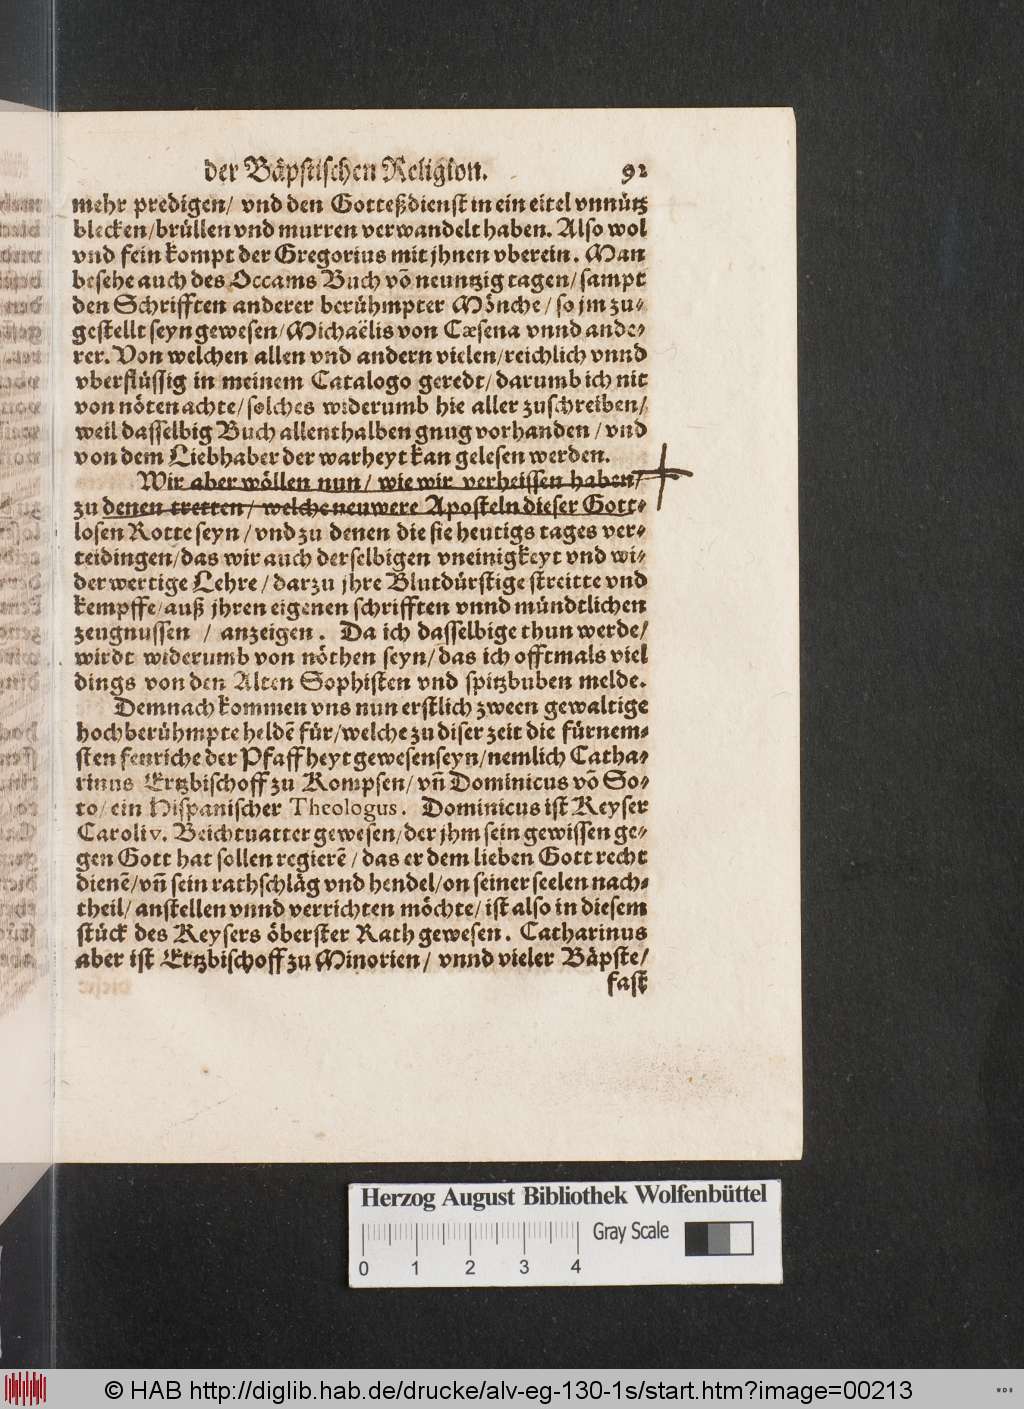 der Bäpstischen Religion. 92
mehr predigen/ vnd den Gotteßdienst in ein eitel vnnütz
blecken/brüllen vnd murren verwandelt haben. Also wol
vnd fein kompt der Gregorius mit jhnen vberein. Man
besehe auch des Occams Buch võ neuntzig tagen/ sampt
den Schrifften anderer berühmpter Mönche/ so jm zu⸗
gestellt seyn gewesen/Michaëlis von Cæsena vnnd ande⸗
rer. Von welchen allen vnd andern vielen/reichlich vnnd
vberflüssig in meinem Catalogo geredt/ darumb ich nit
von nöten achte/ solches widerumb hie aller zuschreiben/
weil dasselbig Buch allenthalben gnug vorhanden /vnd
von dem Liebhaber der warheyt kan gelesen werden.
Wir aber wöllen nun/ wie wir verheissen haben/
zu denen tretten/ welche neuwere Aposteln dieser Gott⸗
losen Rotte seyn/ vnd zu denen die sie heutigs tages ver⸗
teidingen/das wir auch derselbigen vneinigkeyt vnd wi⸗
der wertige Lehre/ darzu jhre Blutdürstige streitte vnd
kempffe/auß jhren eigenen schrifften vnnd mündtlichen
zeugnussen / anzeigen. Da ich dasselbige thun werde/
wirdt widerumb von nöthen seyn/das ich offtmals viel
dings von den Alten Sophisten vnd spitzbuben melde.
Demnach kommen vns nun erstlich zween gewaltige
hochberühmpte heldẽ für/welche zu diser zeit die fürnem⸗
sten fenriche der Pfaffheyt gewesen seyn/nemlich Catha⸗
rinus Ertzbischoff zu Kompsen/ vñ Dominicus võ So⸗
to/ ein Hispanischer Theologus. Dominicus ist Keyser
Caroli v. Beichtuatter gewesen/der jhm sein gewissen ge⸗
gen Gott hat sollen regierẽ / das er dem lieben Gott recht
dienẽ/vñ sein rathschläg vnd hendel/on seiner seelen nach⸗
theil/ anstellen vnnd verrichten möchte/ ist also in diesem
stück des Keysers öberster Rath gewesen. Catharinus
aber ist Ertzbischoff zu Minorien/ vnnd vieler Bäpste/
fast
Herzog August Bibliothek Wolfenbüttel
Gray Scale
0 1 2 3 4
© HAB http://diglib.hab.de/drucke/alv-eg-130-1s/start.htm?image=00213